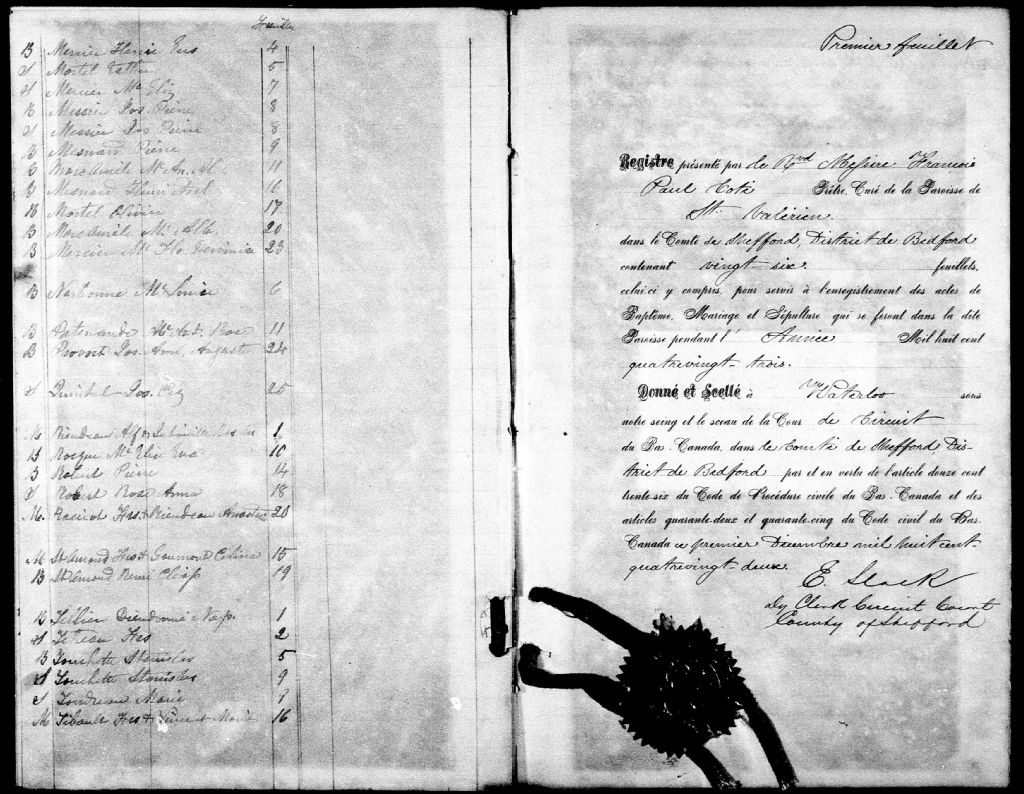 Feuillet
B Mercier Henri Eus 4
S Martel 5
S Mercier Me Eliz 7
B Messier Jos. Pierre 8
S Messier Jos Pierre 8
B Mesnard Pierre 9
B Marc Aurèle Me An. Al. 11
B Mesnard Henri Axel 16
B Martel Olivier 17
B Marc Aurèle Me Alb. 20
B Mercier Me Flo. 23
B Narbonne Me Louise 6
B Me Ant. Rose 11
B Provost Jos. Aug. 24
S Quintal Jos. 25
M Riendeau Alf & 1
B Me Eva 10
B Robert Pierre 14
S Robert Rose Anna 18
M. Racicot Frs & Riendeau 20
M St Amand Frs & Gaumont Celina 15
B St Amand Remi 19
B Tellier Dieudonné Nap. 1
S Frs 2
B Touchette Stanislas 5
S Touchette Stanislas 9
S Marie
M Tibault Frs & Vincent Marie 16
Premier feuillet
Registre présenté par le Rvd Messire François
Paul Coté Prêtre, Curé de la Paroisse de
St. Valérien
dans le Comté de Shefford, District de Bedford
contenant vingt-six feuillets,
celui-ci y compris, pour servir à l'enregistrement des actes de
Baptême, Mariage et Sépulture qui se feront dans la dite
Paroisse pendant l' Année Mil huit cent
quatrevingt-trois.
Donné et Scellé à Waterloo sous
notre seing et le sceau de la Cour de Circuit
du Bas-Canada, dans le Comté de Shefford Dis-
trict de Bedford par et en vertu de l'article douze cent
trente-six du Code de Procédure civile du Bas-Canada et des
articles quarante-deux et quarante-cinq du Code civil du Bas-
Canada ce premier Décembre mil huit cent-
quatrevingt-deux.
E. Slack
Dy Clerk Circuit Court
County of Shefford